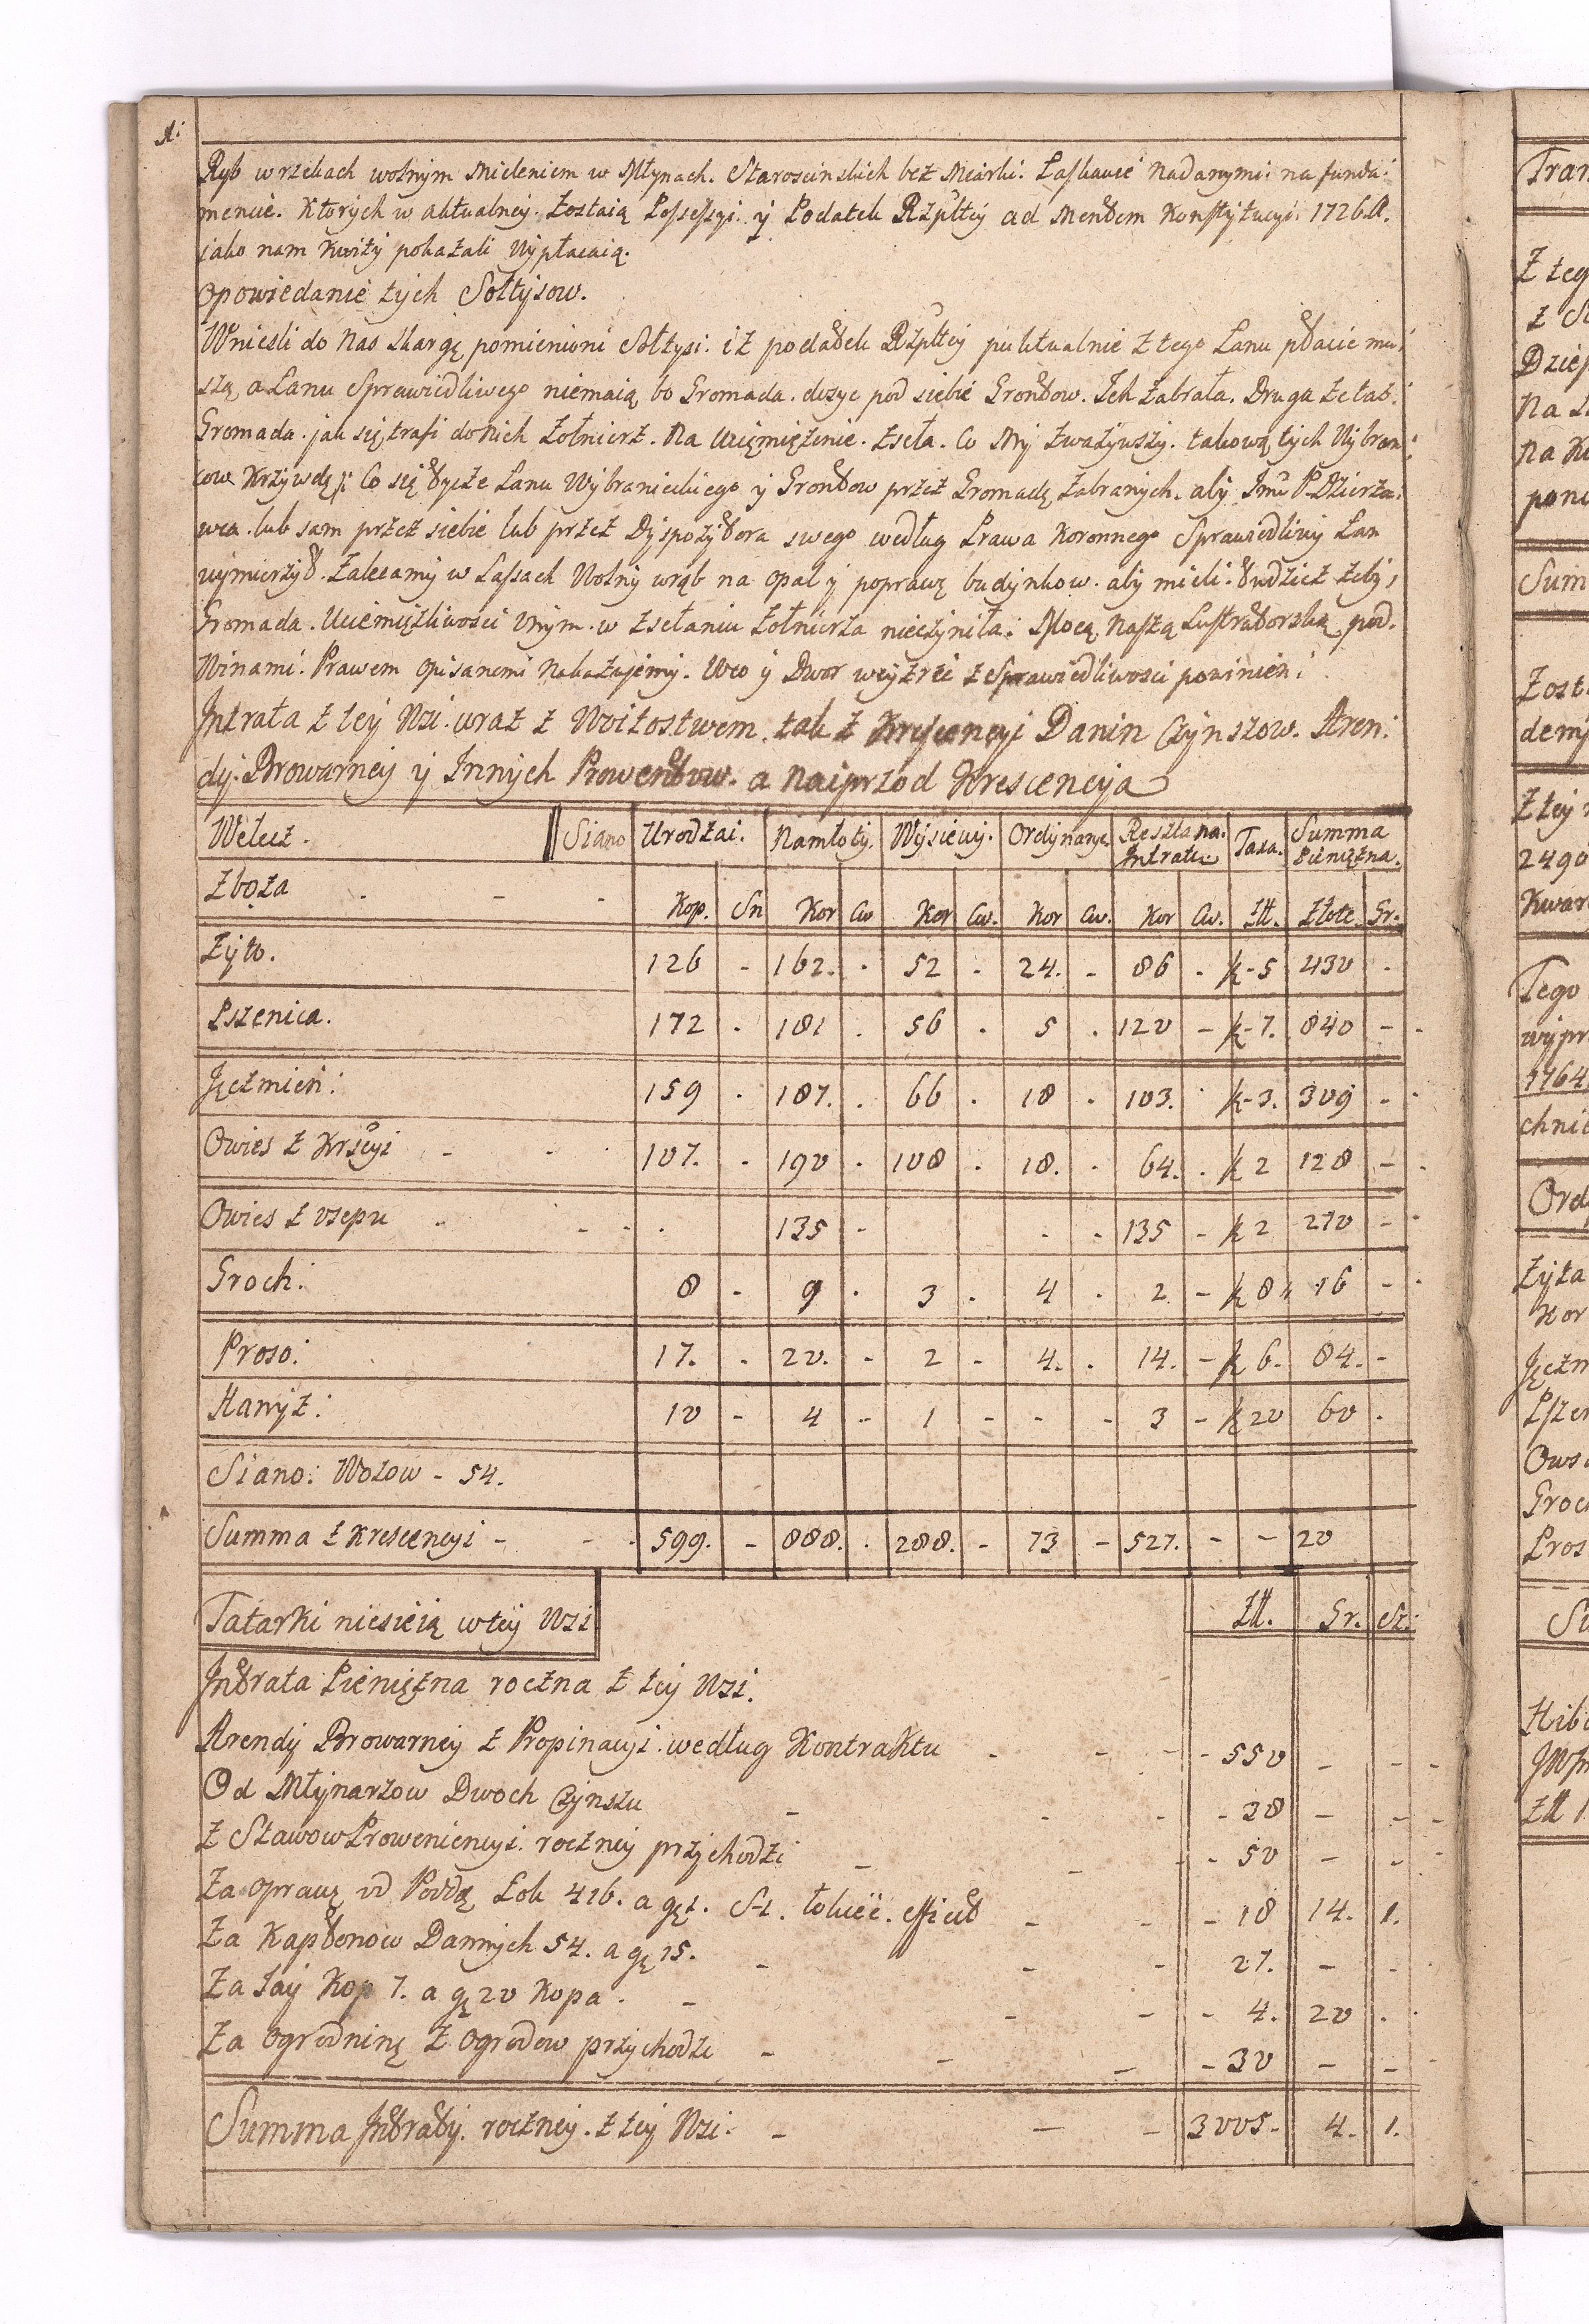 Ryb w rzekach wolnym Mieleniem w Młynach. Staroscinskich bez Miarki. Łaskawie Nadanymi: na funda:
mencie. Ktorych w aktualney. Zostaią Possessyi. y Podatek Rzpltey ad Mentem Konstytucyi. 1726. A.
jako nam Kwity pokazali Wypłacaią.
Opowiedanie tych Sołtysow.
Wniesli do Nas Skargę pomienioni Sołtysi. iż podatek Rzpltey puktualnie z tego Łanu płacic mu:
szą, a Łanu Sprawiedliwego niemaią bo Gromada. dosyc pod siebie Grontow. Ich Zabrała. Druga że taż.
Gromada. jak się trafi do Nich Zołnierz. Na Uciemiężenie. Zseła. Co My Zważywszy. takową tych Wybran:
cow Krzywdę: Co się tycze Łanu Wybranieckiego y Grontow przez Gromadę Zabranych. aby Jmć P. Dzierża:
wca. lub sam przez siebie lub przez Dyspozytora swego według Prawa Koronnego Sprawiedliwy Łan
wymierzył. Zalecamy w Lassach Wolny wrąb na opał y poprawę budynkow. aby mieli. tudziez żeby,
Gromada. Uciemięzliwosci Onym. w Zsełaniu Zołnierza nieczyniła: Mocą Naszą Lustratorską pod.
Winami. Prawem Opisanemi Nakazujemy. Wco y Dwor weyzrec z Sprawiedliwosci powinien:
Intrata z tey Wsi. wraz z Woitostwem. tak z Krescencyi Danin Czynszow. Aren:
dy. Browarney y Innych Prowentow. a Naiprzod Krescencya
Wełecz. Siano Urodzai. Namłoty. Wysiewy. Ordynarye. Reszta na. Intratę Taxa. Summa pieniężna.
Zboża - - - Kop. Sn Kor Cw Kor Cw. Kor Cw. Kor Cw. Zł. Złote. Gr.
Zyto. 126 - 162. . 52 . 24. - 86 . k-5 430 -
Pszenica. 172 . 181 . 56 . 5 . 120 - k-7. 840 -
Jęczmień: 159 . 187. . 66 . 18 . 103. . k-3. 309 -
Owies z Krscyi - - 107. - 190 . 108 . 18. . 64. . k 2 128 -
Owies z osepu - - - . 135 - . - 135 - k 2 270 -
Groch: 8 - 9 . 3 . 4 . 2 - k 8 16 -
Proso: 17. - 20. - 2 - 4. . 14. - k 6. 84. -
Hanyż: 10 - 4 - 1 - - - 3 - k 20 60 .
Siano: Wozow - 54.
Summa z Krescencyi - - - 599. - 888. . 288. - 73 - 527. - - 20
Tatarki niesieią w tey Wsi Zł. Gr. Sz:
Intrata Pieniężna roczna z tey Wsi.
Arendy Browarney z Propinacyi. według Kontraktu - - - - 550 - - -
Od Młynarzow Dwoch Czynszu - - - - 38 - - -
Z Stawow Proweniencyi. roczney przychodzi - - - - 50 - -
Za oprawę od Łok 416. a g 1. S-1. łokieć. efficit - - - 18 14. 1.
Za Kapłonow Dannych 54. a gę 15. - - - 27. - -
Za Jay Kop 7. a gę 20 Kopa. - - - - 4. 20 .
Za ogrodninę z ogrodow przychodzi - - - - 30 - -
Summa Intraty. roczney. z tey Wsi. - - - 3005 - 4. 1.
Tran
Z teg
z S
Dziej
Na
na K
poni
Sum
Zost
demi
Z tey
2490
Kwar
Tego
wypr
1764
chnie
Ord
Zyta
Kor
Jęczm
Pszen
Ows
Groc
Pros
Su
Hib
Zł 1